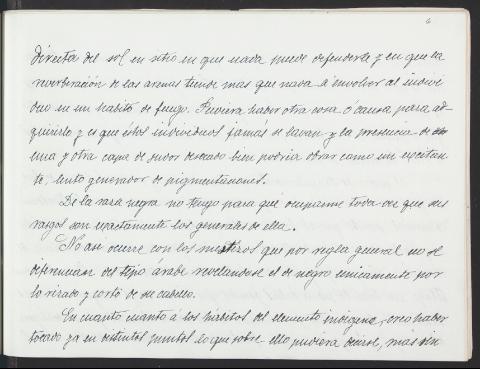 6
directa del sol en sitio en que nada puede defenderle y en que la
reverberación de las arenas tiende mas que nada á envolver al indivi
duo en un habito de fuego. Pudiera haber otra cosa ó causa para ad
quirirlo y es que éstos individuos jamás se lavan y la presencia de
una y otra capa de sudor desecado bien podria obrar como un excitan
te, lento generador de pigmentaciones.
De la raza negra no tengo para que ocuparme toda vez que sus
rasgos son exactamente los generales de ella.
No asi ocurre con los mestizos que por regla general no se
diferencian del tipo árabe revelandose el de negro unicamente por
lo rizado y corto de su cabello.
En cuanto cuanto á los hábitos del elemento indigena, creo haber
tocado ya en distintos puntos lo que sobre ello pudiera decirse, más sin